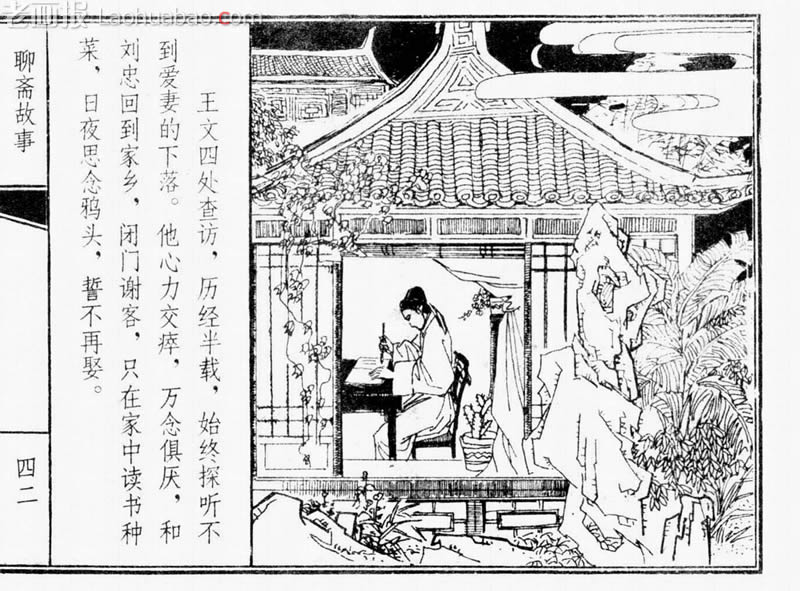 老画报 Laohuabao.com
王文四处查访，历经半载，始终探听不
到爱妻的下落。他心力交瘁，万念俱厌，和
刘忠回到家乡，闭门谢客，只在家中读书种
菜，日夜思念鸦头，誓不再娶。
聊斋故事
四二